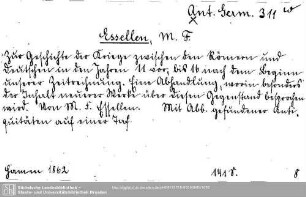 Ant. Germ. 311 w
Essellen, M. F
Zur Geschichte der Kriege zwischen den Römern und
Deutschen in den Jahren 11 vor, bis 16 nach dem Beginn
unserer Zeitrechnung. Eine Abhandlung, worin besonders
der Inhalt neuerer Werke über diesen Gegenstand besprochen
wird. Von M. F. Essellen. Mit Abb. gefundener Anti,
quitäten auf einer Taf
Hamm 1862 141 S. 8
Sächsische Landesbibliothek -
Staats- und Universitätsbibliothek Dresden